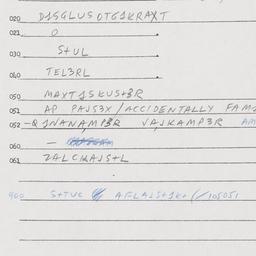 020 D1SGLUSOTG1KRAXT
021 O
030 S+UL
040 TEL3RL
050 MAXT1SKUS+3R
051 AP PAJS3X/ACCIDENTALLY FAM
052 -Q1NANAMP3R VAJKAMP3R AM
060 -
061 ZALCKAJS+L
900 S+TUC AFLAJS+1K+ (/105051